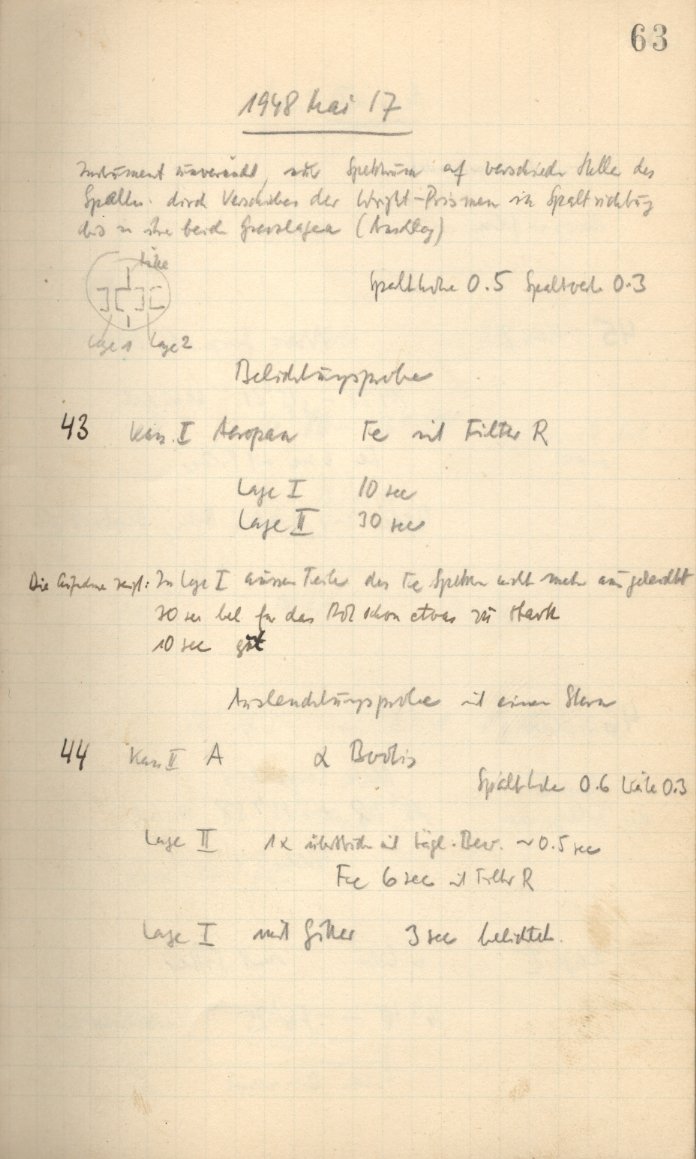 63
1948 Mai 17
Instrument unverändert, nur Spektrum auf verschiedenen Stellen des
Spaltes durch Verschieben der Wright-Prismen in Spaltrichtung
bis in ihre beiden Grenzlagen (Anschlag)
Lage 1 Lage 2
Spalthöhe 0.5 Spaltweite 0.3
Belichtungsprobe
43 Kass. II Aeropan Fe mit Filter R
Lage I 10 sec
Lage II 30 sec
Die Aufnahme zeigt: In Lage I äussere Teile des Fe Spektrums nicht mehr ausgeleuchtet
30 sec bel für das Rot schon etwas zu stark
10 sec gut
Ausleuchtungsprobe mit einem Stern
44 Kass II A α Bootis
Spalthöhe 0.6 Weite 0.3
Lage II 1x überstrichen mit tägl. Bew. ~0.5 sec
Fe 6 sec mit Filter R
Lage I mit Gitter 3 sec belichtet.